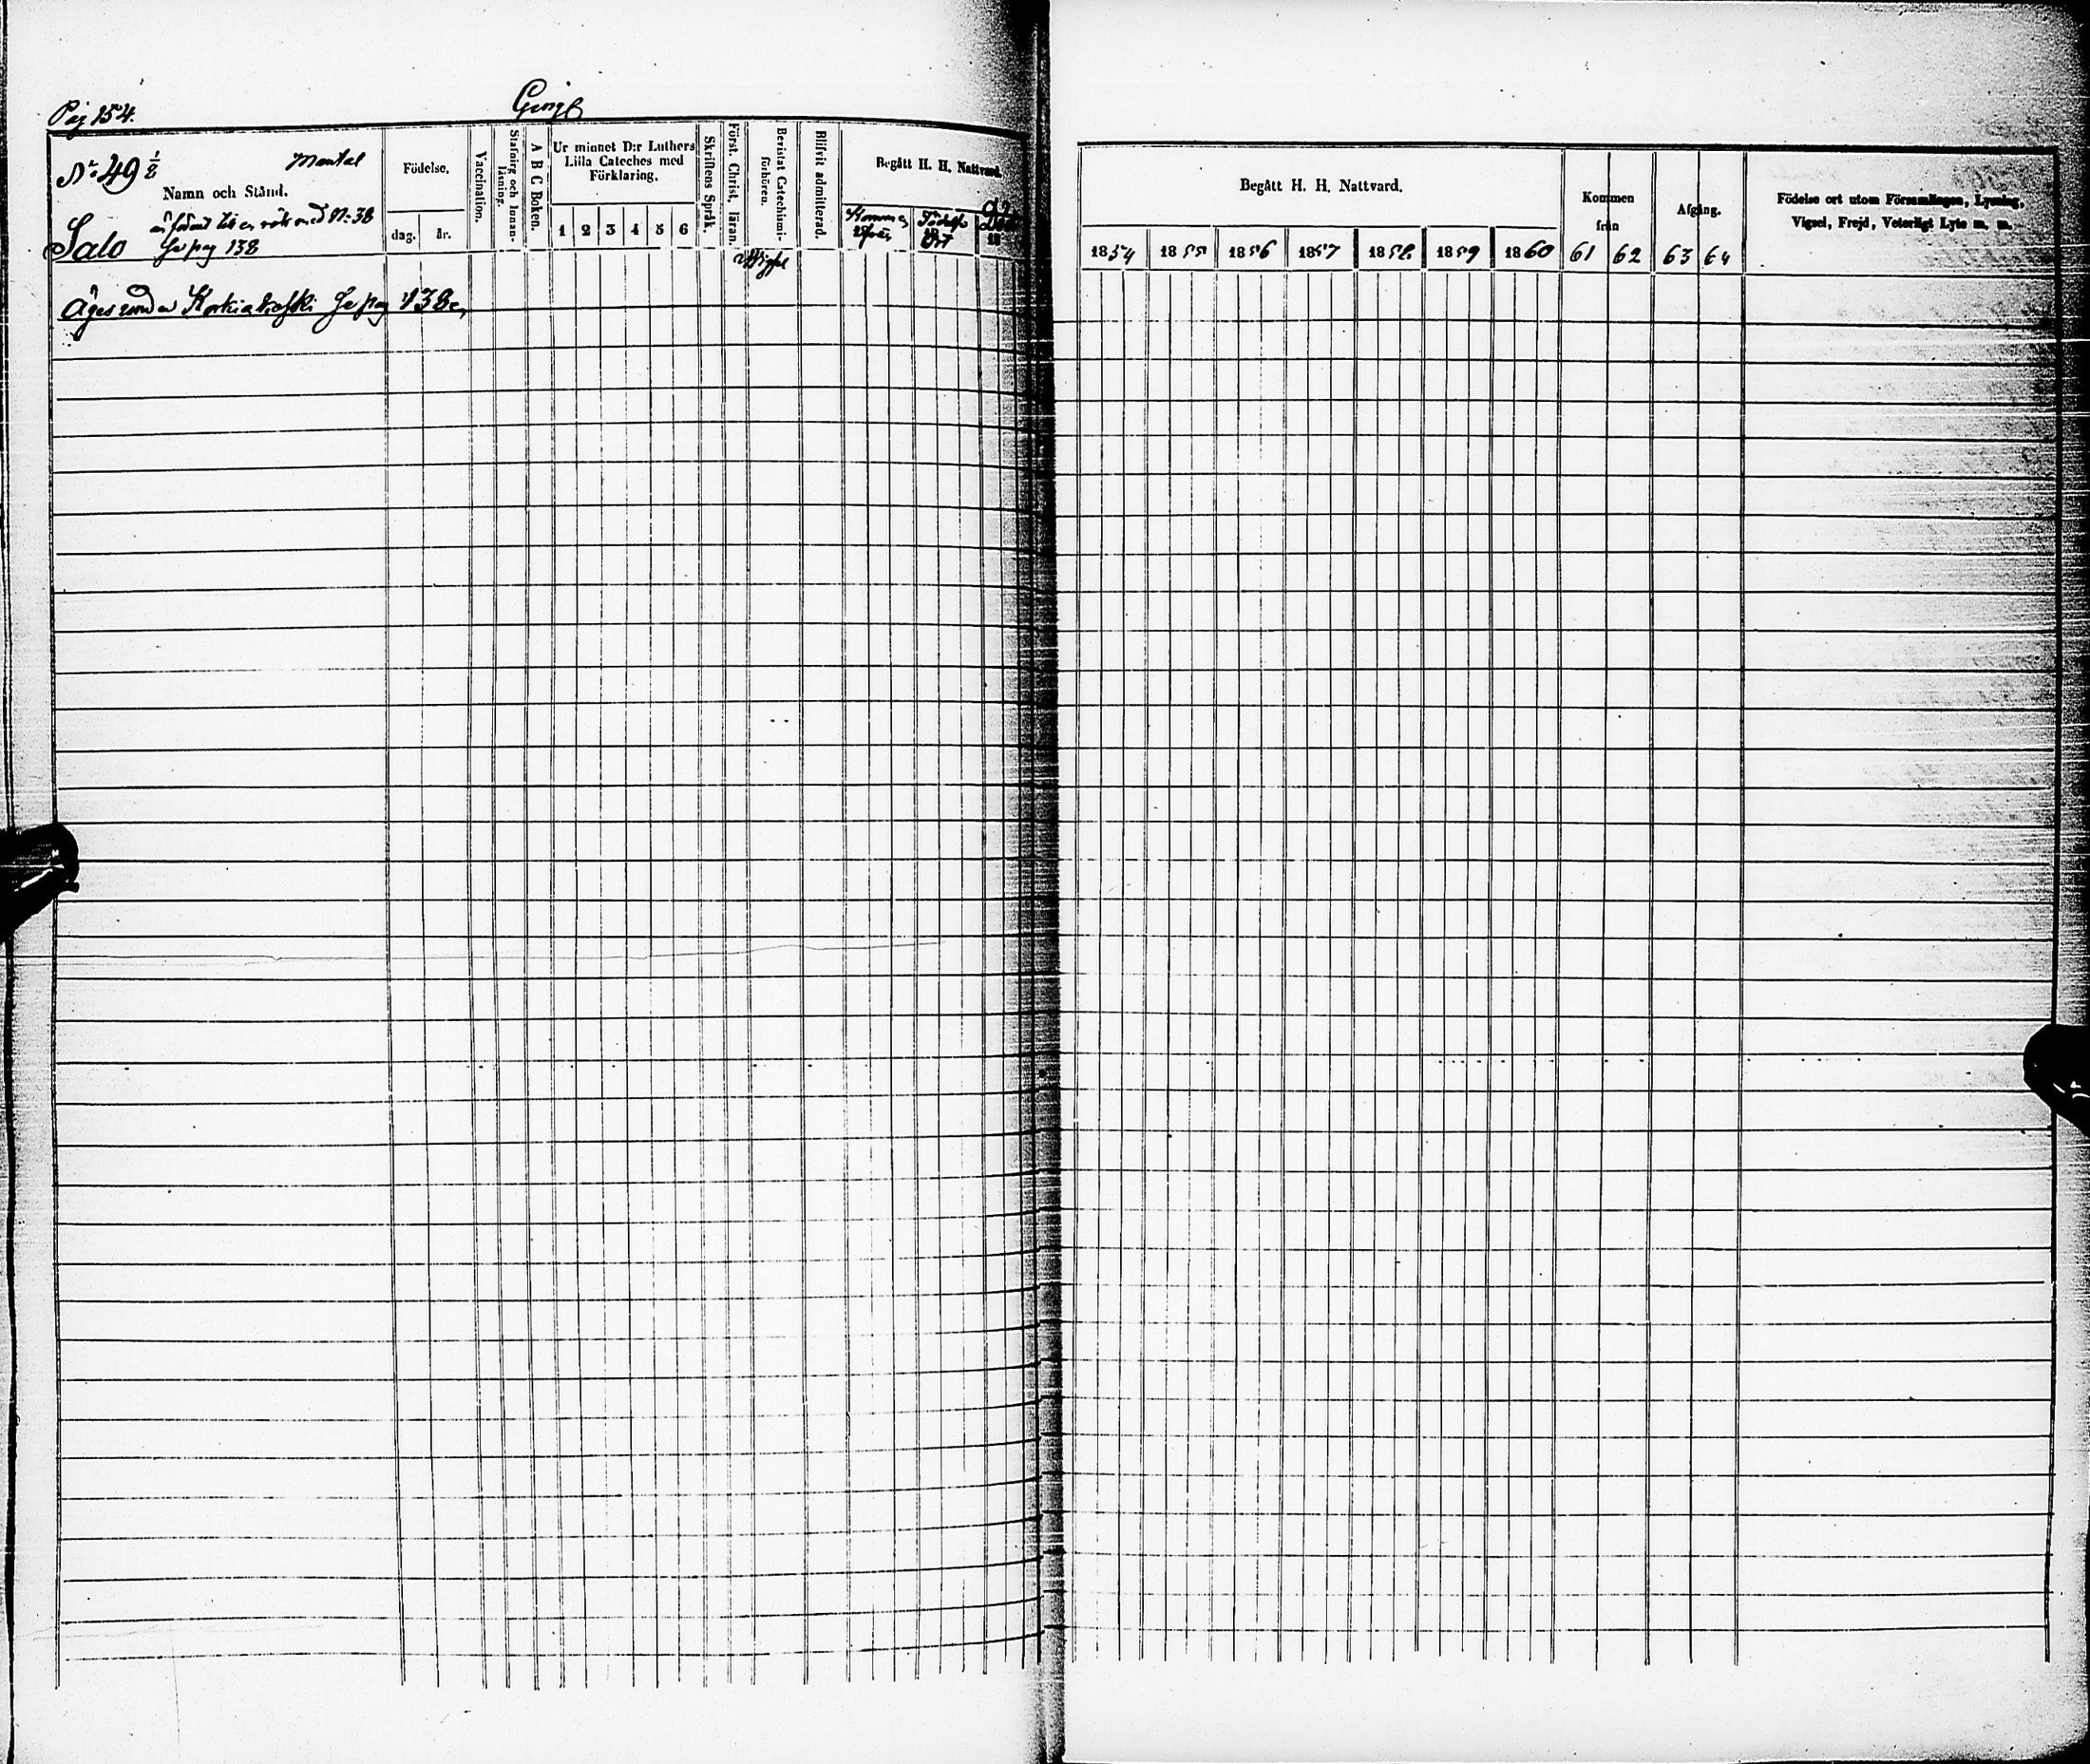 Pag 154.
No 49 1/2 Mantal
Namn och Stånd.
Salo
med No 38
Se pag 138
Födelse.
dag. år.
Vaccination.
Stafning och Innan-
läsning.
A B C Boken.
Ur minnet D:r Luthers
Lilla Cateches med
Förklaring.
1 2 3 4 5 6
Skriftens Språk.
Först. Christ. läran.
Bevistat Catechismi-
förhören.
Blifvit admitterad.
Begått H. H. Nattvard.
Kommen
från
Födelse
Ort
Äges under Korkiakoski Se pag 138.
Begått H. H. Nattvard.
1854 1855 1856 1857 1858 1859 1860
Kommen
från
61 62
Afgång.
63 64
Födelse ort utom Församlingen, Lysning,
Vigsel, Frejd, Veterligt Lyte m. m.